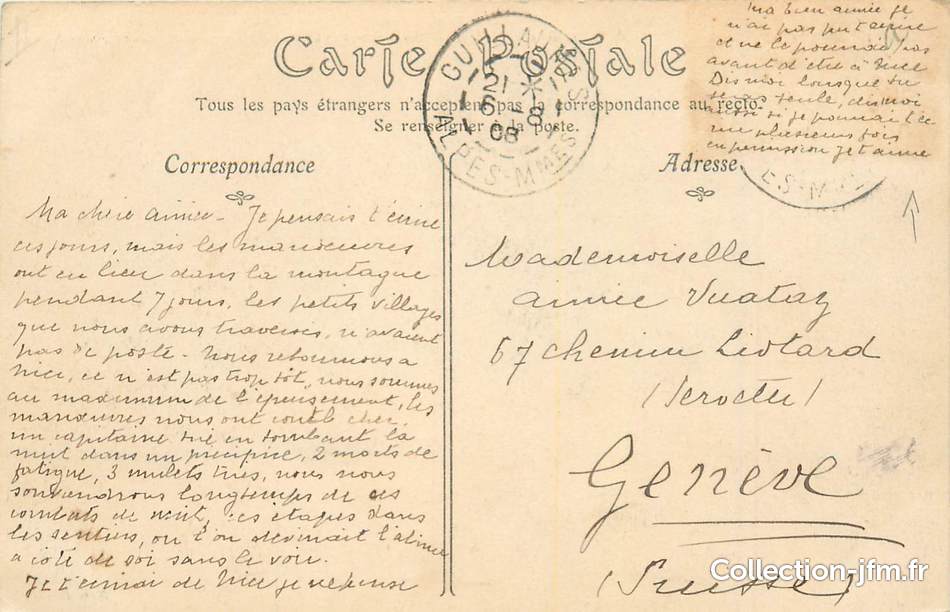 Carte Postale
Tous les pays étrangers n'acceptent pas la correspondance au recto.
Se renseigner à la poste.
Correspondance
Adresse
GUILLAUMES
21
6
08
ALPES-MMES
ES-M
Ma bien aimée je
n'ai pas pu t'écrire
et ne le pourrai pas
avant d'être à Nice
Dis moi lorsque tu
seras seule, dis moi
aussi si je pourrai te
plusieurs fois
en permission Je t'aime
Ma chère aimée. Je pensais t'écrire
ces jours, mais les manœuvres
ont eu lieu dans la montagne
pendant 7 jours, les petits villages
que nous avons traversés, n'avaient
pas de poste. Nous retournons a
Nice, ce n'est pas trop tôt, nous sommes
au maximum de l'épuisement, les
manœuvres nous ont coûté cher,
un capitaine tué en tombant la
nuit dans un précipice, 2 morts de
fatigue, 3 mulets tués, nous nous
souviendrons longtemps de ces
combats de nuit, ces étapes dans
les sentiers, où l'on devinait l'abîme
a côté de soi sans le voir.
Je t'écrirai de Nice je
Mademoiselle
Annie Vuataz
67 chemin Liotard
(Servette)
Genève
(Suisse)
Collection-jfm.fr